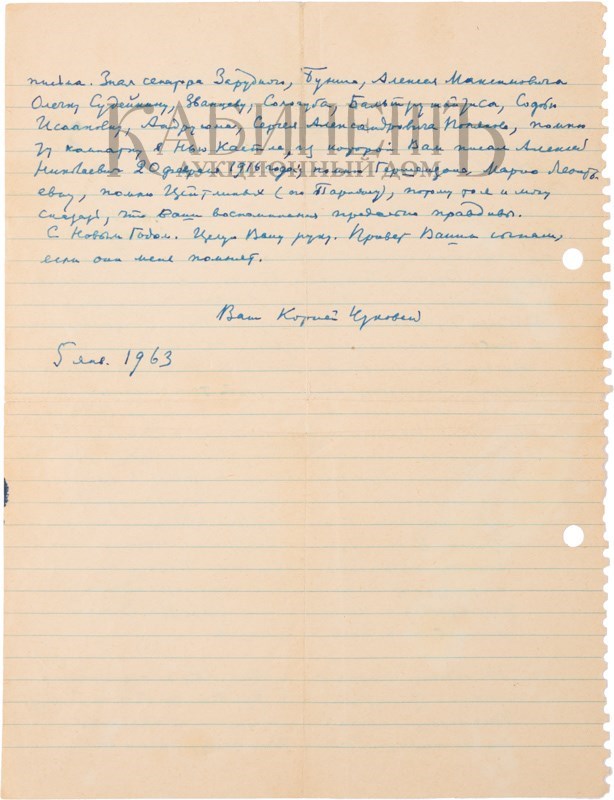 письма. Знал сенатора Зарудного, Бунина, Алексея Максимовича
Олечку Судейкину, Званцеву, Сологуба, Балтрушайтиса, Софью
Исааковну, Сергея Александровича Попова, помню
ту комнату в Нью Кастле, из которой Вам писал Алексей
Николаевич 20 февраля 1916 года, помню Гершензона, Марию Леонтьевну,
помню Цейтлиных (по Парижу), потому то и могу
сказать, что Ваши воспоминания предельно правдивы.
С Новым Годом. Целую Вашу руку. Привет Вашим сыновьям,
если они меня помнят.
Ваш Корней Чуковский
5 янв. 1963
КАБИНЕТЪ
АУКЦИОННЫЙ ДОМ